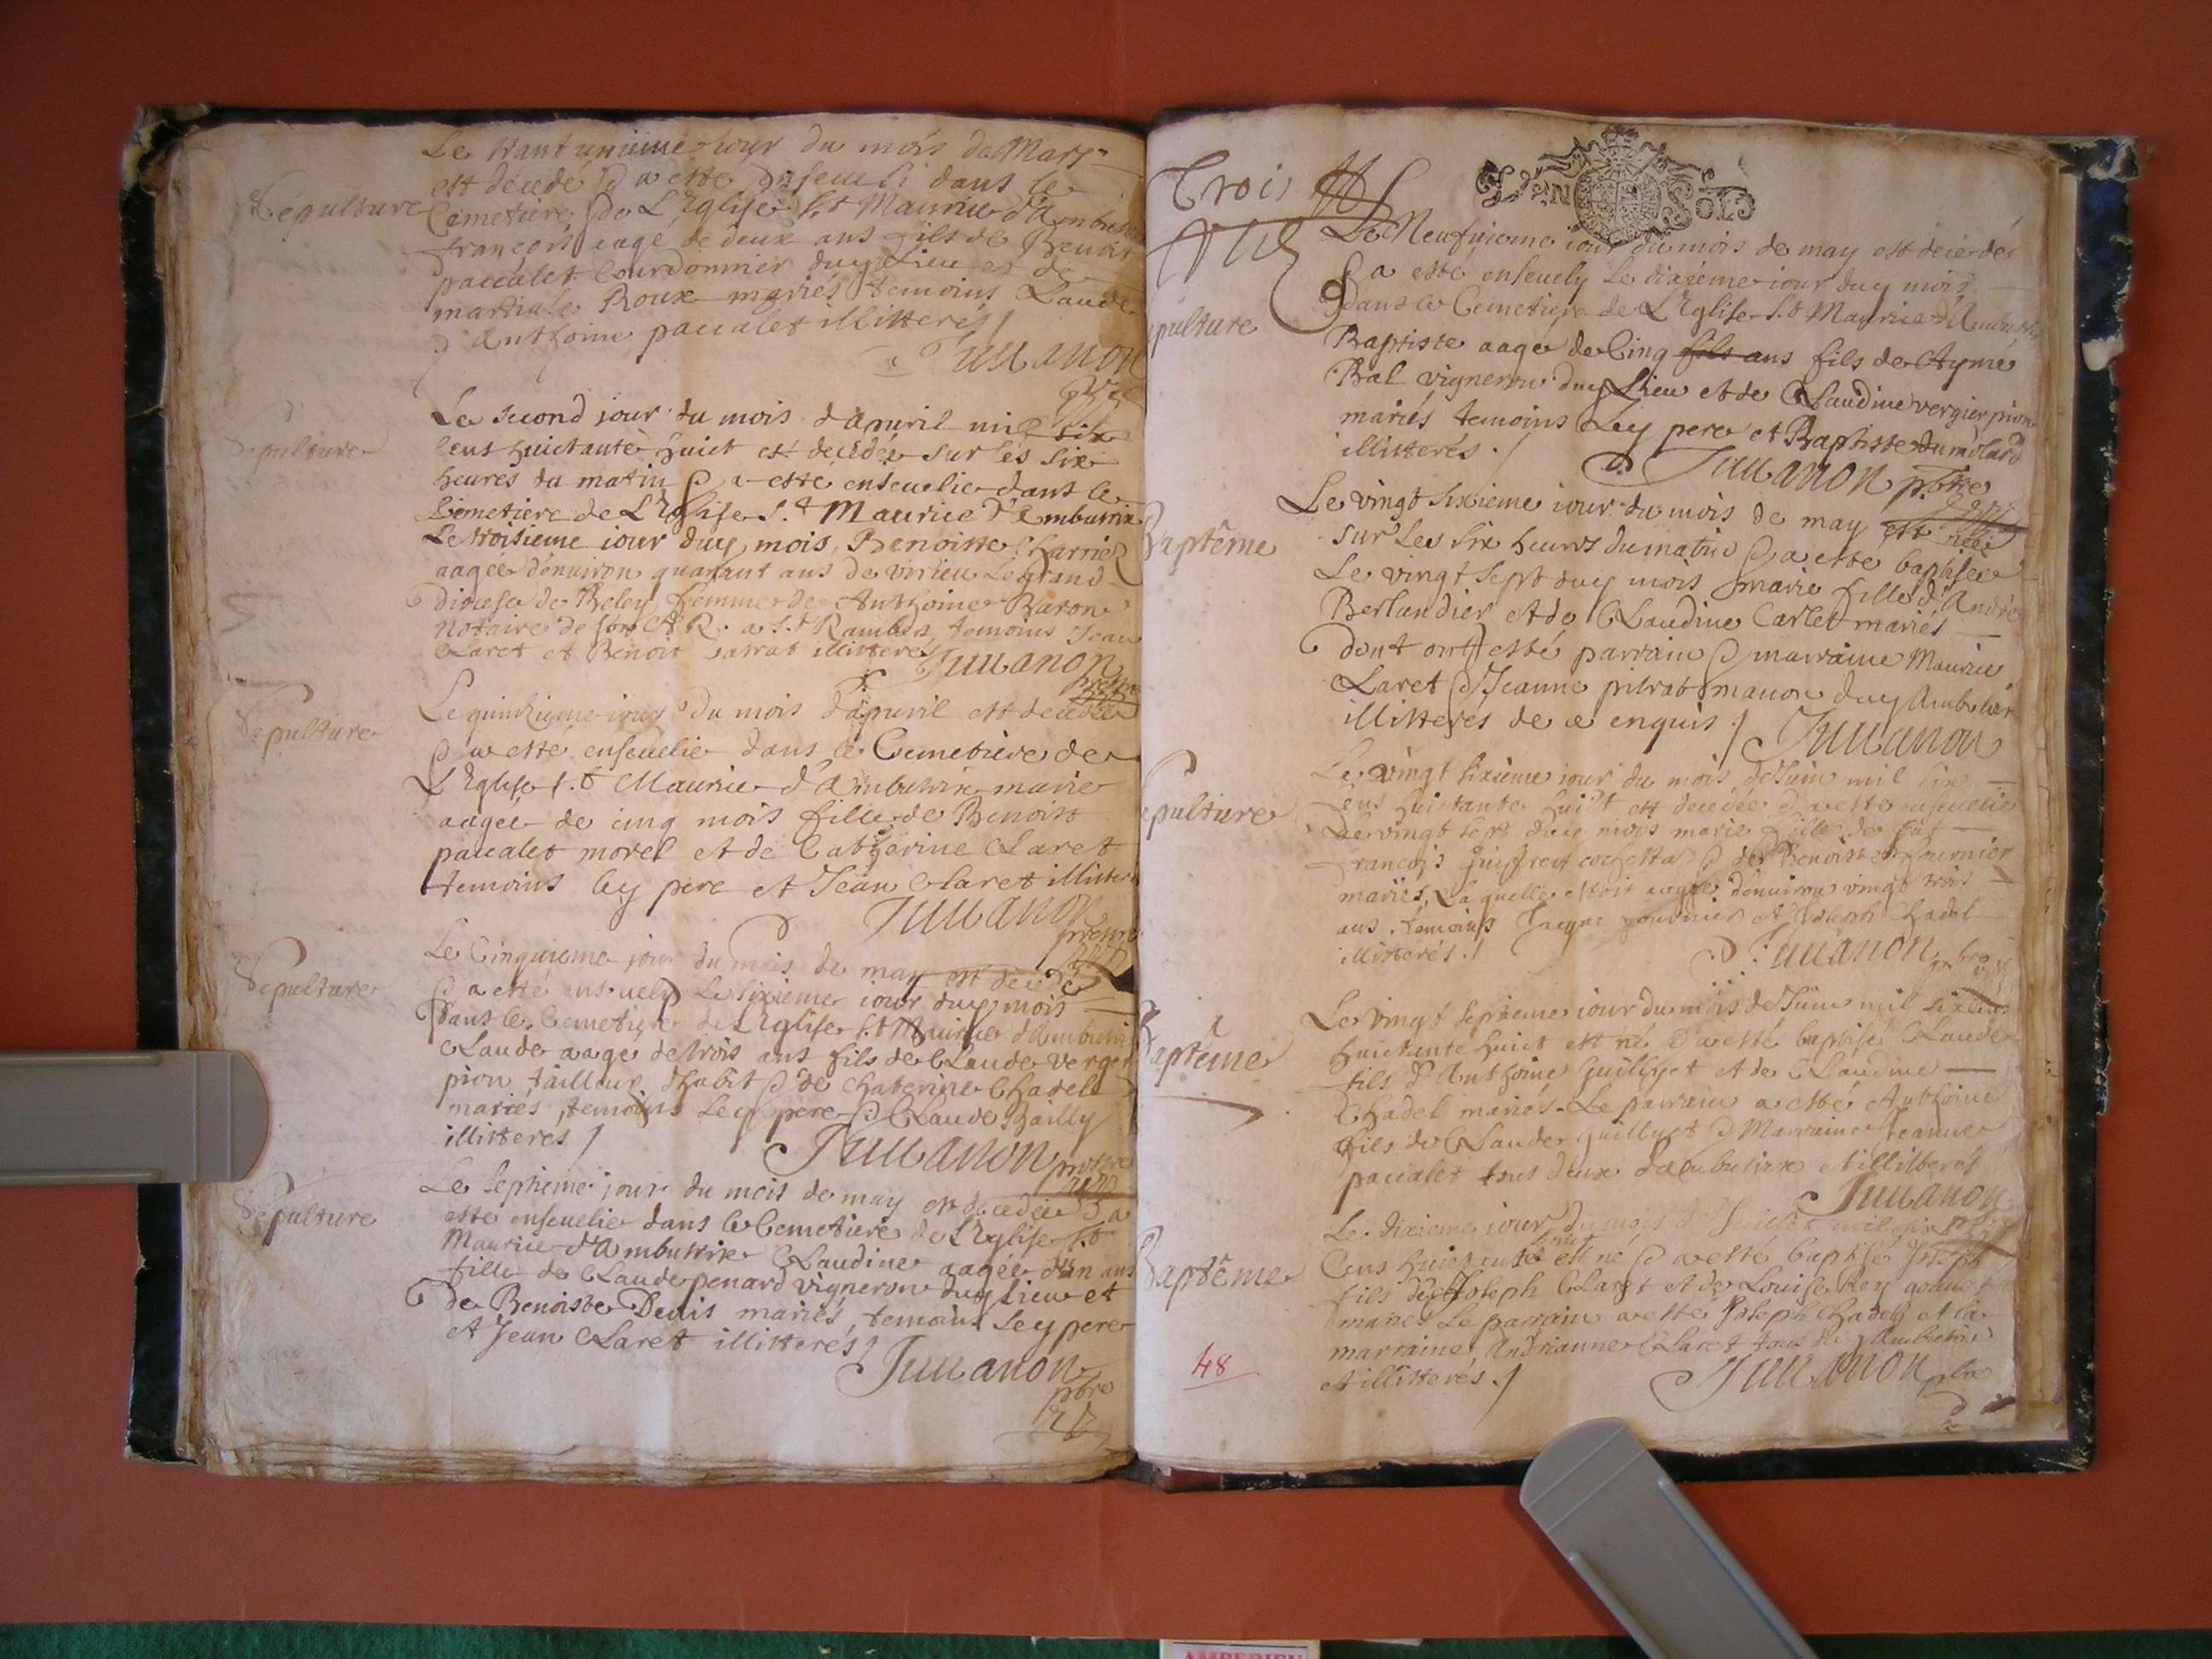 Le trant unieme jour du mois de Mars
est decedé & a esté enseueli dans le
Sepulture
Cemetiere de L'Eglise St Maurice d'Ambutrix
françois aagé de deux ans fils de Benoist
paccalet Courdonnier duy Lieu et de
martiale Roux mariés temoins Claude
& Anthoine paccalet illitterés
Juuanon
Le second jour du mois d'apuril mil six
Sepulture
cens huictante huict est decedée sur les six
heures du matin & a esté enseuelie dans le
Cemetiere de L'Eglise St Maurice d'Ambutrix
Le troisieme iour duy mois, Benoiste Charrier
aagee d'enuiron quarant ans de virieu Le grand
diocese de Beley femme de Anthoine Baron
Notaire de son A. R. a St Rambert temoins Jean
Claret et Benoit illitterés
Juuanon
Le quinzieme iour du mois d'apuril est decedée
Sepulture
& a esté enseuelie dans le Cemetiere de
L'Eglise St Maurice d'Ambutrix marie
aagée de cinq mois fille de Benoist
paccalet morel et de Catherine Claret
temoins ley pere et Jean Claret illitterés
Juuanon
Le Cinquieme jour du mois de may est decedé
Sepulture
& a esté enseuely Le sixieme iour duy mois
dans le Cemetiere de L'Eglise St Maurice d'Ambutrix
Claude aage de trois ans fils de Claude verger
pion tailleur d'habit & de Chaterine Chadel
mariés, temoins Ley pere & Claude Bailly
illitterés
Juuanon
Le septieme jour du mois de may est decedée & a
Sepulture
esté enseuelie dans le Cemetiere de L'Eglise St
Maurice d'Ambutrix Claudine aagée d'un ans
fille de Claude penard vigneron duy Lieu et
de Benoiste Denis mariés, temoins Ley pere
et Jean Claret illitterés
Juuanon
pbre
Trois
GEN SOL
Le Neufuieme iour du mois de may est decedé
& a esté enseuely Le dixieme iour duy mois
pulture
dans le Cemetiere de L'Eglise St Maurice d'Ambutrix
Baptiste aagé de Cinq fils ans fils de Aymé
Bal vigneron duy Lieu et de Claudine vergier pion
mariés temoins Ley pere et Baptiste dumolard
illitterés.
Juuanon pbtre
Le vingt sixieme iour du mois de may est née
Baptême
sur Les six heures du matin & a esté baptisee
Le vingt sept duy mois marie fille d'André
Berlandier et de Claudine Carlet mariés
dont ont esté parrain & marraine Maurice
Claret & Jeanne pitrat manon duy Ambutrix
illitterés de ce enquis
Juuanon
Le vingt sixieme iour du mois de Juin mil six
cens huictante huict est decedée & a esté enseuelie
epulture
Le vingt sept duy mois marie fille de
françois & de Benoiste fournier
mariés, Laquelle estoit aagée d'enuiron vingt trois
ans. temoins Jacque fournier et Joseph Chadel
illitterés.
Juuanon pbre
Le vingt septieme iour du mois de Juin mil six cens
huictante huict est né & a esté baptisé Claude
Baptême
fils d'Anthoine Guillyet et de Claudine
Chadel mariés. Le parrain a esté Anthoine
fils de Claude guillyet & Marraine Jeanne
paccalet tous deux d'ambutrix et illitterés
Juuanon
Le dixieme iour du mois de Juillet mil six
Cens huictante huict est né & a esté baptisé Joseph
Baptême
fils de Joseph Claret et de Louise Rey gonnet
mariés Le parrain a esté Joseph Chadel et la
marraine Andrianne Claret tous duy Ambutrix
et illitterés.
Juuanon pbre
48